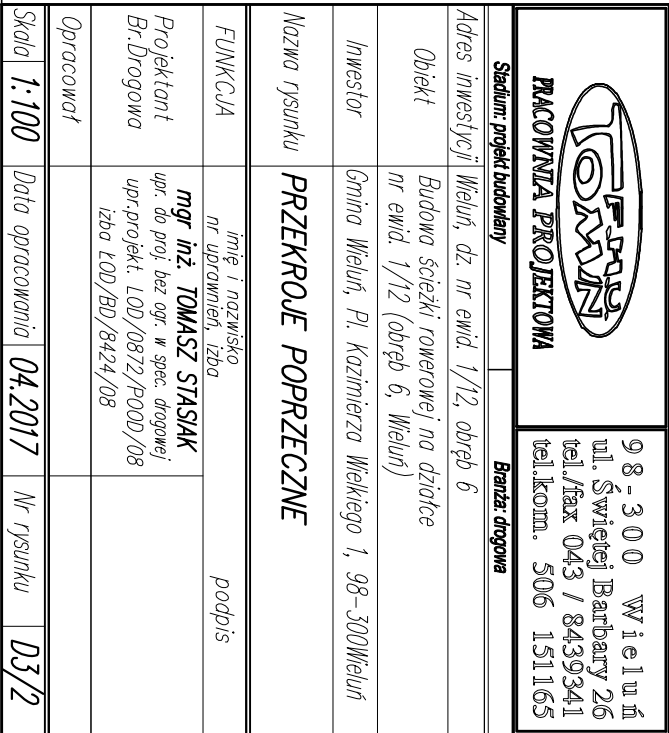 F.H.U.
TOMN
PRACOWNIA PROJEKTOWA
98-300 Wieluń
ul. Świętej Barbary 26
tel./fax 043 / 8439341
tel.kom. 506 151165
Stadium: projekt budowlany
Branża: drogowa
Adres inwestycji
Wieluń, dz. nr ewid. 1/12, obręb 6
Obiekt
Budowa ścieżki rowerowej na działce
nr ewid. 1/12 (obręb 6, Wieluń)
Inwestor
Gmina Wieluń, Pl. Kazimierza Wielkiego 1, 98-300Wieluń
Nazwa rysunku
PRZEKROJE POPRZECZNE
FUNKCJA
imię i nazwisko
nr uprawnień, izba
podpis
Projektant
Br.Drogowa
mgr inż. TOMASZ STASIAK
upr. do proj. bez ogr. w spec. drogowej
upr.projekt. LOD/0872/POOD/08
izba ŁOD/BD/8424/08
Opracował
Skala
1:100
Data opracowania
04.2017
Nr rysunku
D3/2